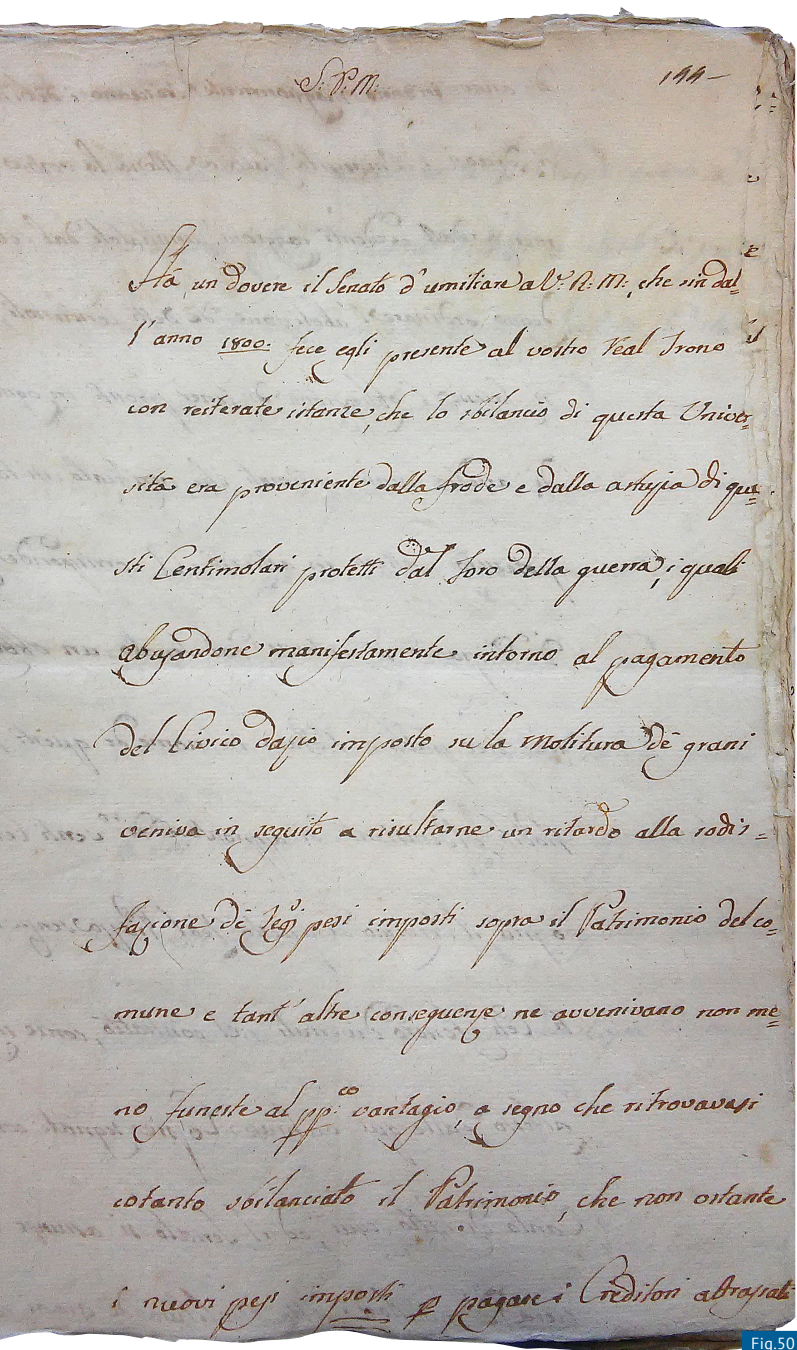 S. P. M.
199
Há un dovere il Senato d'umiliare a V.ª R. M., che sin dal=
l'anno 1800. fece egli presente al vostro Real Trono
con reiterate istanze, che lo sbilancio di questa Univer=
sitá era proveniente dalla frode e dalla astuzia di que=
sti Centimolari protetti dal foro della guerra, i quali
abusandone manifestamente intorno al pagamento
del Civico dazio imposto su la molitura dé grani
veniva in seguito a risultarne un ritardo alla sodis=
fazione dé Regj pesi imposti sopra il Patrimonio del co=
mune e tant' altre conseguenze ne avvenivano non me=
no funeste al pp.co vantagio, a segno che ritrovavasi
cotanto sbilanciato il Patrimonio, che non ostante
i nuovi pesi imposti p pagare i Creditori attrassati
Fig.50